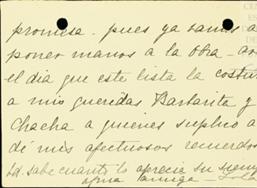 promesa - pues ya vamos a
poner manos a la obra -
el dia que este lista la
a mis queridas Barbarita y
Chacha a quienes suplico
de mis afectuosos recuerdos
Ud. sabe cuanto lo aprecia su
afma amiga